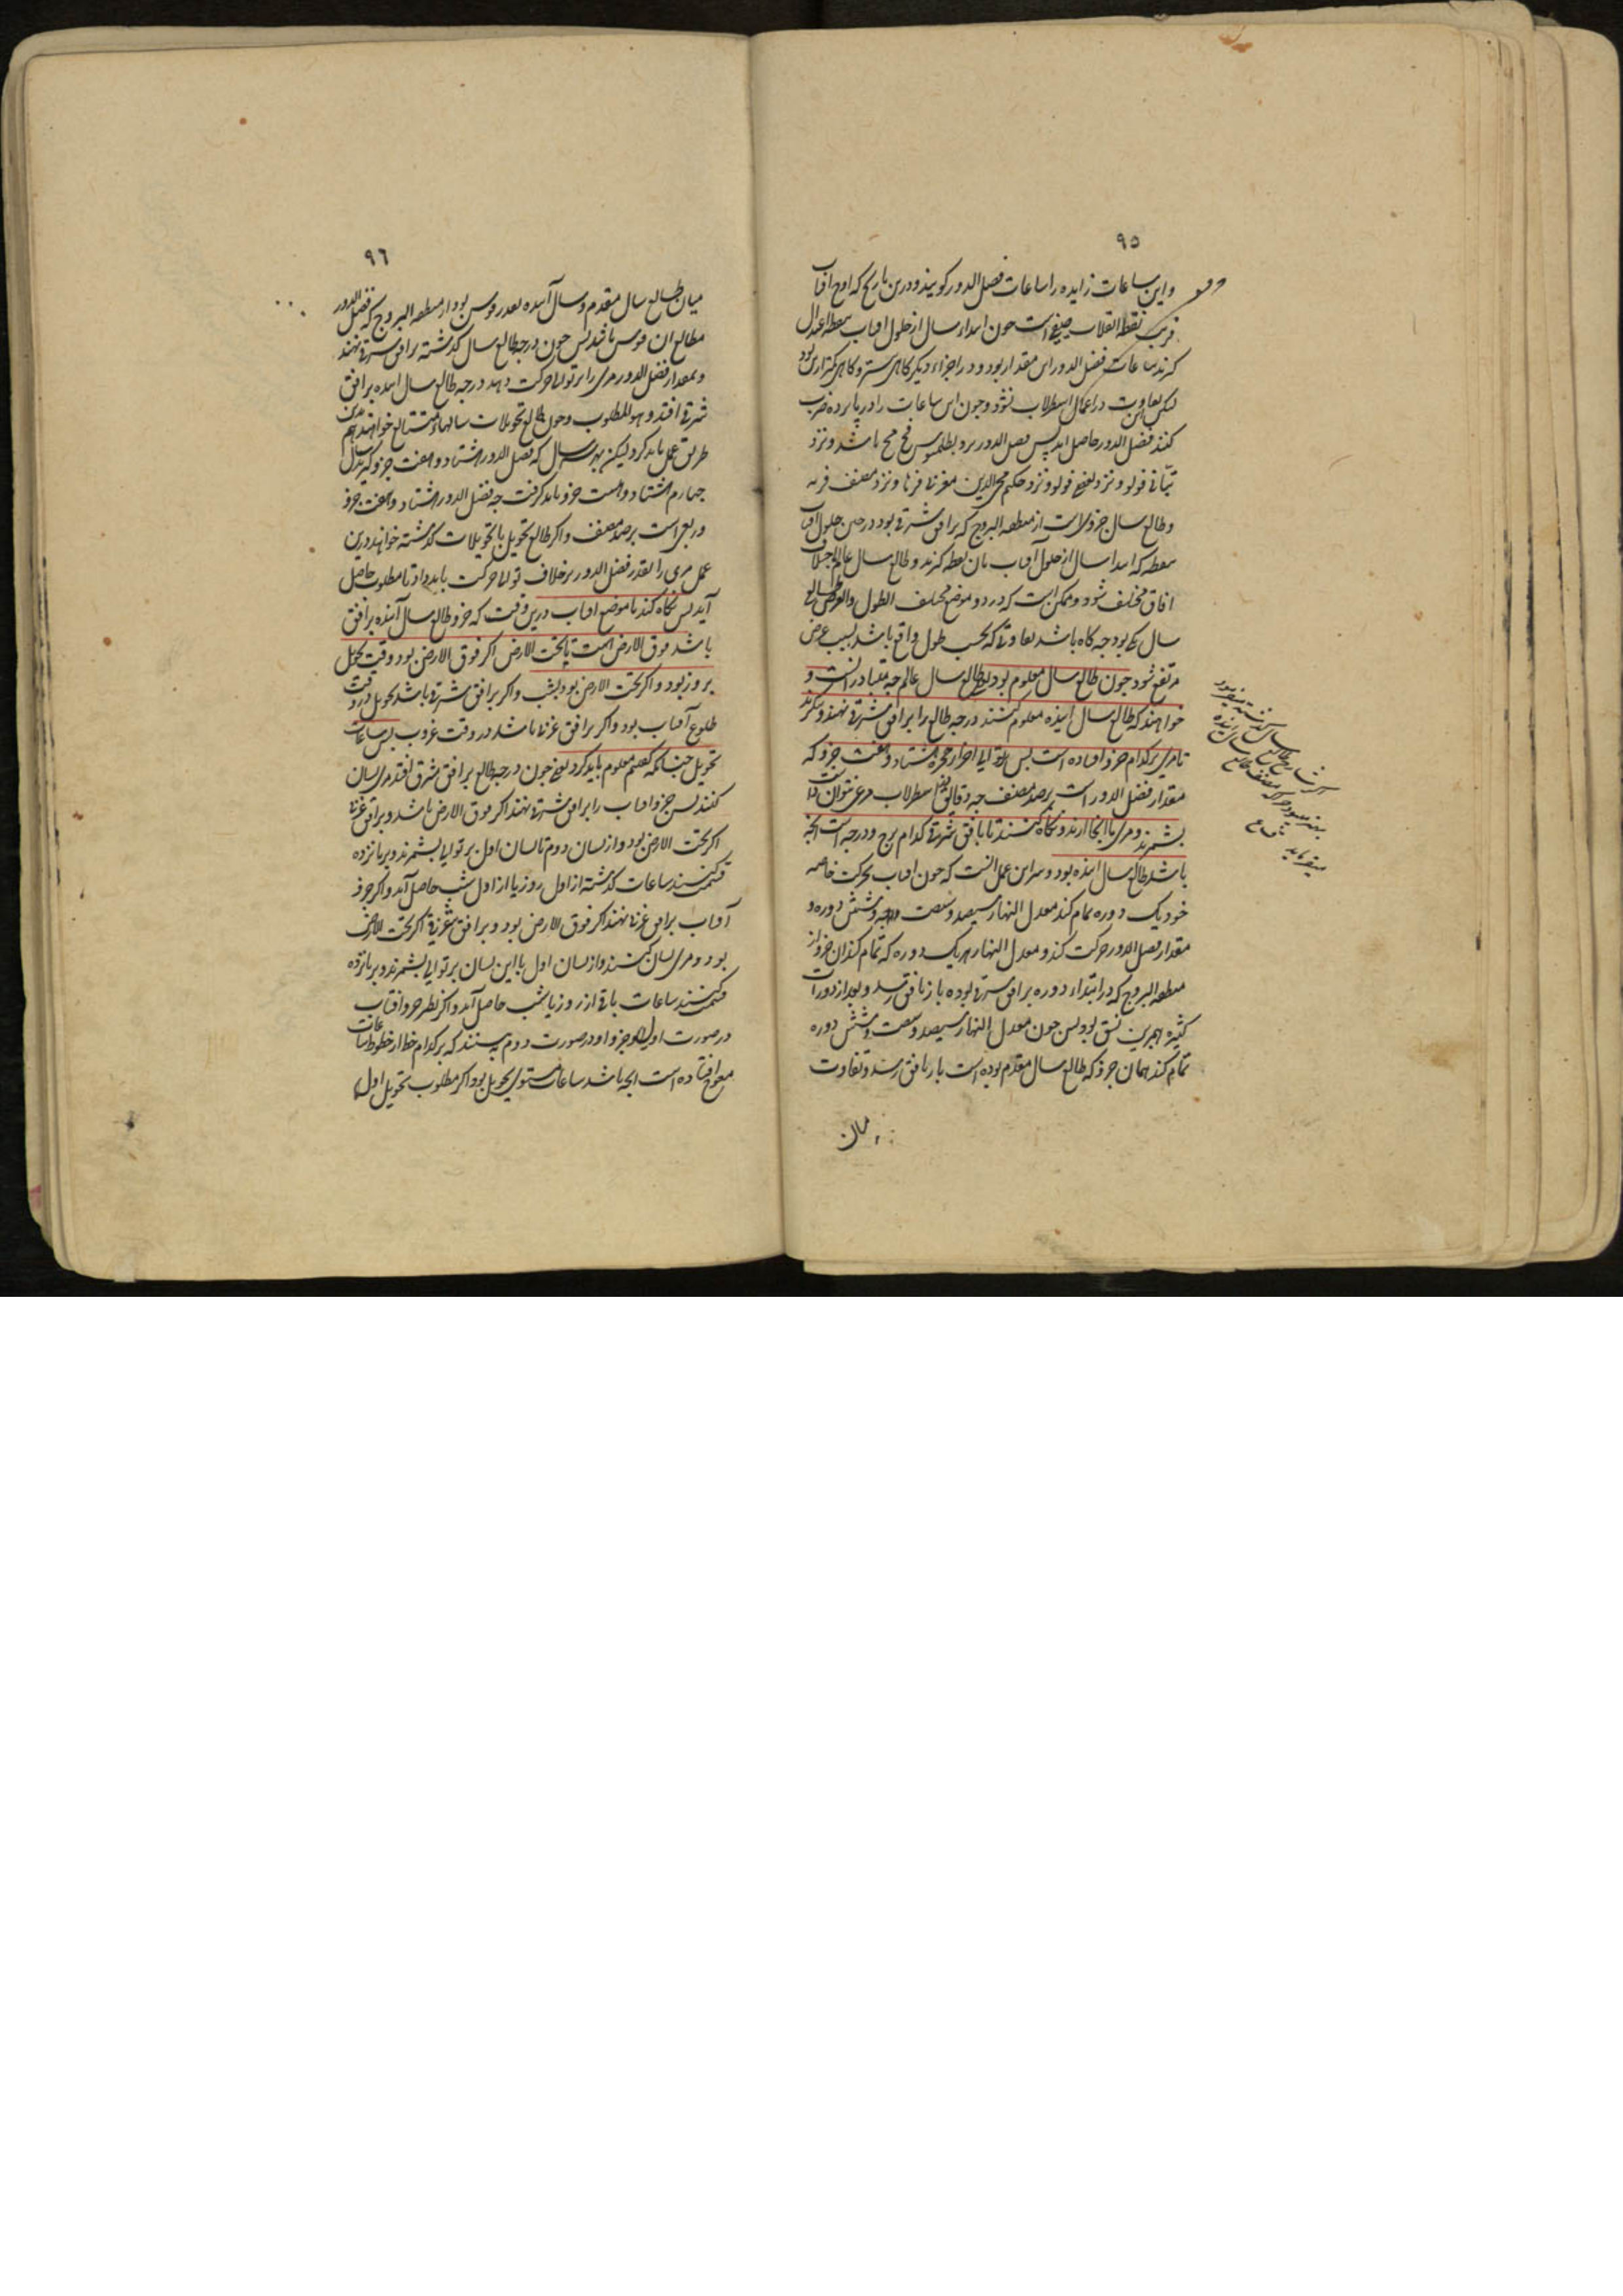 ۹۵
واین ساعات زایده را ساعات فضل الدور کویند ودرین تاریخ که اوج افتاب
قریب نقطه انقلاب صیفی است جون ابتداء سال از حلول افتاب بنقطه اعتدال
کیرند ساعات فضل الدور این مقدار بود ودر اجزاء دیکر کاهی بیشتر وکاهی کمتر ازین بود
لیکن این تفاوت در اعمال اسطرلاب نشود وجون این ساعات را در پانزده ضرب
کنند فضل الدور حاصل اید پس فضل الدور نزد بطلمیوس فح مح باشد ونزد
بتانی فولو ونزد بعضی فولو ونزد حکیم محی الدین مغربی فرنا ونزد مصنف فریه
وطالع سال جزوی است از منطقه البروج که برافق شرقی بود در حین حلول افتاب
بنقطه که ابتدا سال از حلول افتاب بان نقطه کیرند وطالع سال عالم باختلاف
افاق مختلف شود وممکن است که در دو موضع مختلف الطول والعرض طالع
سال یکی بود جه کاه باشد تفاوتی که بحسب طول واقع باشد بسبب عرض
مرتفع شود جون طالع سال معلوم بود یعنی طالع سال عالم جه متبادر انست و
خواهند که طالع سال اینده معلوم کنند درجه طالع را برافق مشرقی نهند وبنکرند
تا مری برکدام جزو افتاده است پس بر توالی اجزاء حجره هشتاد وهفت جزو که
مقدار فضل الدور است برصد مصنف جه دقایق در اسطرلاب مرعی نتوان داشت
بشمرند ومری باانجا ارند ونکاه کنند تا بافق شرقی کدام برج ودرجه است انجه
باشد طالع سال اینده بود وسر این عمل انست که جون افتاب بحرکت خاصه
خود یک دوره تمام کند معدل النهار سیصد وشصت وشش دوره و
مقدار فضل الدور حرکت کند ومعدل النهار بهر یک دوره که تمام کند ان جزو از
منطقه البروج که در ابتداء دوره برافق شرقی بوده باز بافق رسد وبعد از دورات
کثیره همبرین نسق بود پس جون معدل النهار سیصد وشصت وشش دوره
تمام کند همان جزو که طالع سال مقدم بوده است باز بافق رسد وتفاوت
میان
۹۶
میان طالع سال مقدم وسال آینده بقدر قوسی بود از منطقه البروج که فضل الدور
مطالع ان قوس باشد پس جون درجه طالع سال کذشته برافق شرقی نهند
وبمقدار فضل الدور مری را بر توالی حرکت دهند درجه طالع سال اینده برافق
شرقی افتد وهو المطلوب وجون طالع تحویلات سالهاء متتالی خواهند هم بدین
طریق عمل باید کرد لیکن بهر سه سال که فضل الدور هشتاد وهفت جزو کیرند سال
جهارم هشتاد وهشت جزو باید کرفت جه فضل الدور هشتاد وهفت جزو
وربعی است برصد مصنف واکر طالع تحویل یا تحویلات کذشته خواهند درین
عمل مری را بقدر فضل الدور برخلاف توالی حرکت باید داد تا مطلوب حاصل
آید پس نکاه کنند تا موضع افتاب درین وقت که جزو طالع سال آینده برافق
باشد فوق الارض است یا تحت الارض اکر فوق الارض بود وقت تحویل
بروز بود واکر تحت الارض بود بشب واکر برافق شرقی باشد تحویل در وقت
طلوع آفتاب بود واکر برافق غربی باشد در وقت غروب پس ساعات
تحویل جنانکه کفتیم معلوم باید کرد یعنی جون درجه طالع برافق شرقی افتد مری نشان
کنند پس جزو افتاب را برافق شرقی نهند اکر فوق الارض باشد وبرافق غربی
اکر تحت الارض بود واز نشان دوم تا نشان اول بر توالی بشمرند وبر پانزده
قسمت کنند ساعات کذشته از اول روز یا از اول شب حاصل آید واکر جزو
آفتاب برافق غربی نهند اکر فوق الارض بود وبرافق شرقی اکر تحت الارض
بود ومری نشان کنند واز نشان اول با این نشان بر توالی بشمرند وبر پانزده
قسمت کنند ساعات باقی از روز یا شب حاصل آید واکر نظیر جزو افتاب
در صورت اول وجزو او در صورت دوم ببینند که بر کدام خط از خطوط ساعات
معوج افتاده است انجه باشد ساعات مستوی تحویل بود اکر مطلوب تحویل اول